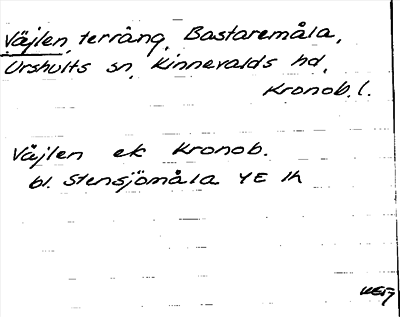 Väjlen, terräng, Bastaremåla,
Urshults sn, Kinnevalds hd,
Kronob. l.
Väjlen ek Kronob.
bl. Stensjömåla YE 1h